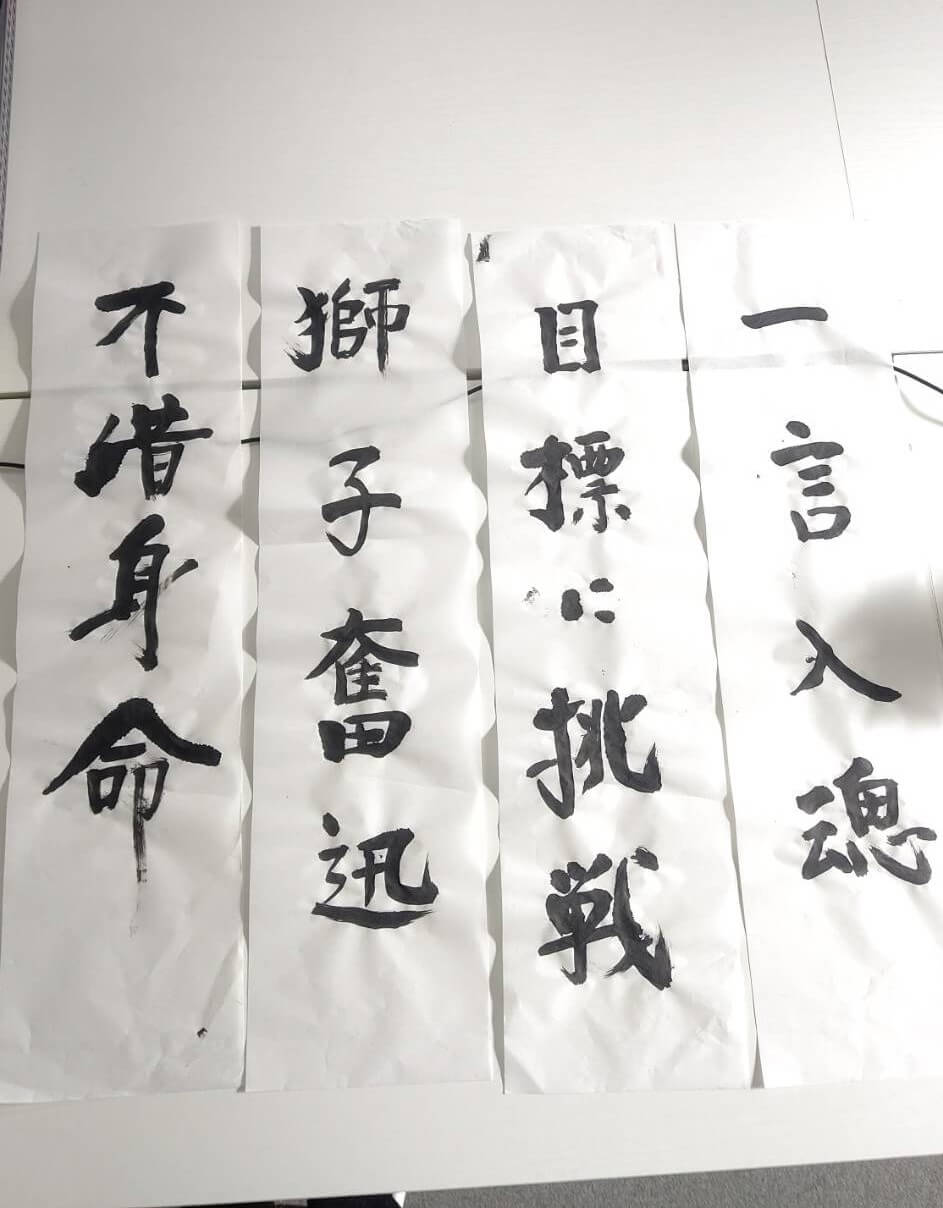 一言入魂
目標に挑戦
獅子奮迅
不惜身命